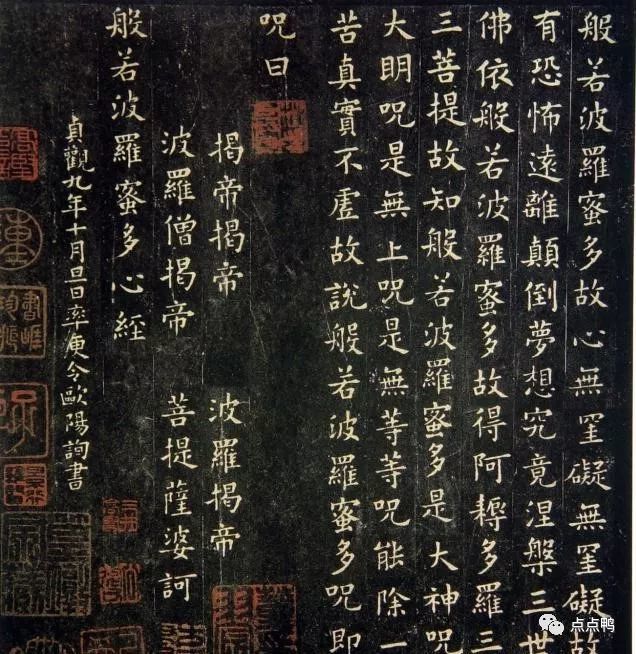 般若波羅蜜多故心無罣礙無罣礙故
有恐怖遠離顛倒夢想究竟涅槃三世
佛依般若波羅蜜多故得阿耨多羅三
三菩提故知般若波羅蜜多是大神呪
大明呪是無上呪是無等等呪能除一
苦真實不虛故說般若波羅蜜多呪即
呪曰
揭帝揭帝 波羅揭帝
波羅僧揭帝 菩提薩婆訶
般若波羅蜜多心經
貞觀九年十月旦日率更令歐陽詢書
点点鸭